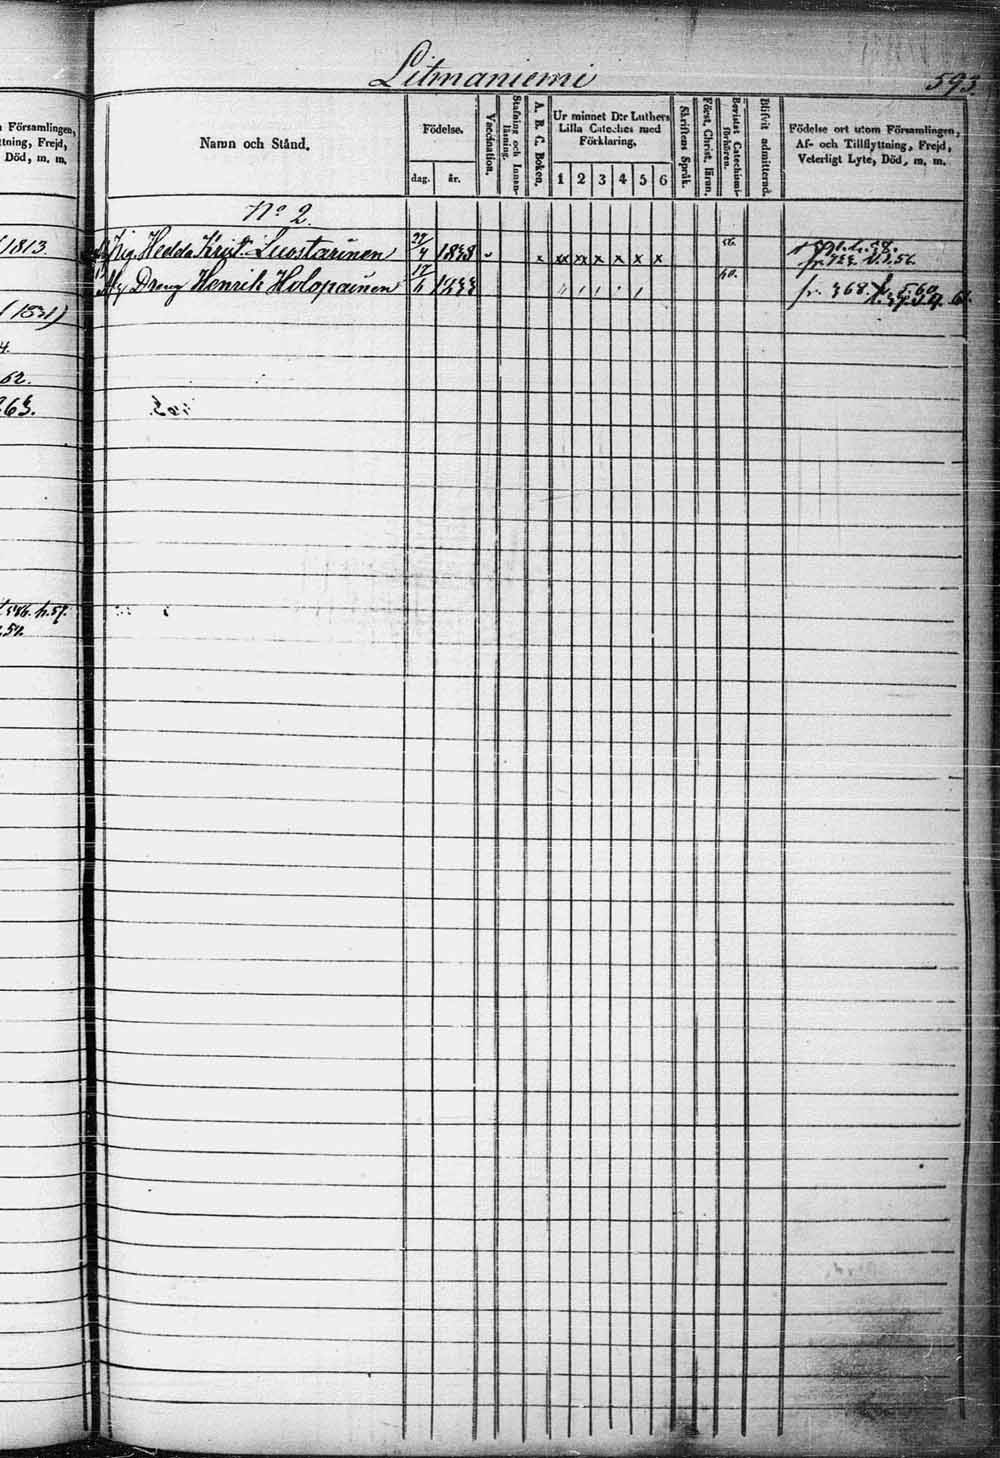 Litmaniemi
593.
n Församlingen,
ttning, Frejd,
Död, m. m.
Namn och Stånd.
Födelse.
dag.
år.
Vaccination.
Stafning och Innanläsning.
A. B. C. Boken.
Ur minnet D:r Luthers
Lilla Cateches med
Förklaring.
1 2 3 4 5 6
Skriftens Språk.
Först. Christ. Lärun.
Bevistat Catechismiförhören.
Blifvit admitternd.
Födelse ort utom Församlingen,
Af- och Tillflyttning, Frejd,
Veterligt Lyte, Död, m. m.
No 2.
1813.
Pig. Hedda Krist. Luostarinen 22/4 1838 x xx xx x x x x 56.
fr. 733. 56.
Dreng Henrik Holopainen 17/6 1833 60.
fr. 368. 560
(1531)
4.
62.
63.
546. h. 57.
57.